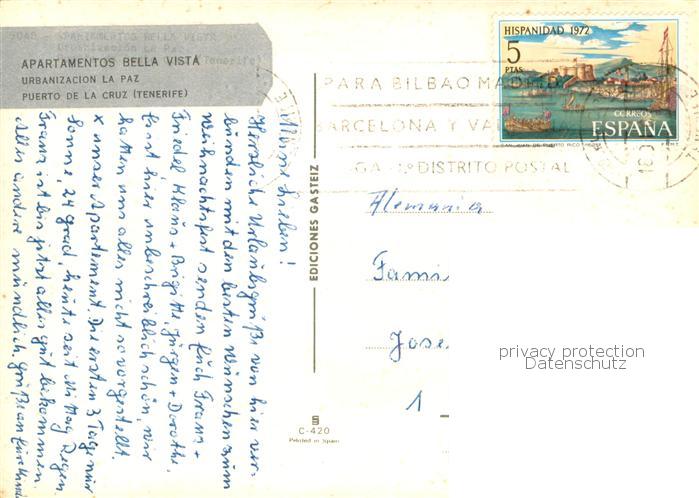 APARTAMENTOS BELLA VISTA
URBANIZACION LA PAZ
PUERTO DE LA CRUZ (TENERIFE)
HISPANIDAD 1972
5
PTAS
CORREOS
ESPAÑA
SAN JUAN DE PUERTO RICO
F.N.M.T.
PARA BILBAO MADRID
BARCELONA Y VA
DISTRITO POSTAL
Meine Lieben!
Herzliche Urlaubsgrüße von hier ver-
bunden mit den besten Wünschen zum
Weihnachtsfest senden Euch Franz +
Friedel Klaus + Brigitte, Jürgen + Dorothe,
Es ist hier unbeschreiblich schön, wir
hatten uns alles nicht so vorgestellt.
x unser Apartement. Die ersten 3 Tage nur
Sonne, 24 Grad, heute seit Mittag Regen.
Franz ist bis jetzt alles gut bekommen.
Alles andere mündlich. Grüße an
EDICIONES GASTEIZ
C-420
Printed in Spain
Alemania
Fami
Jose
1
privacy protection
Datenschutz